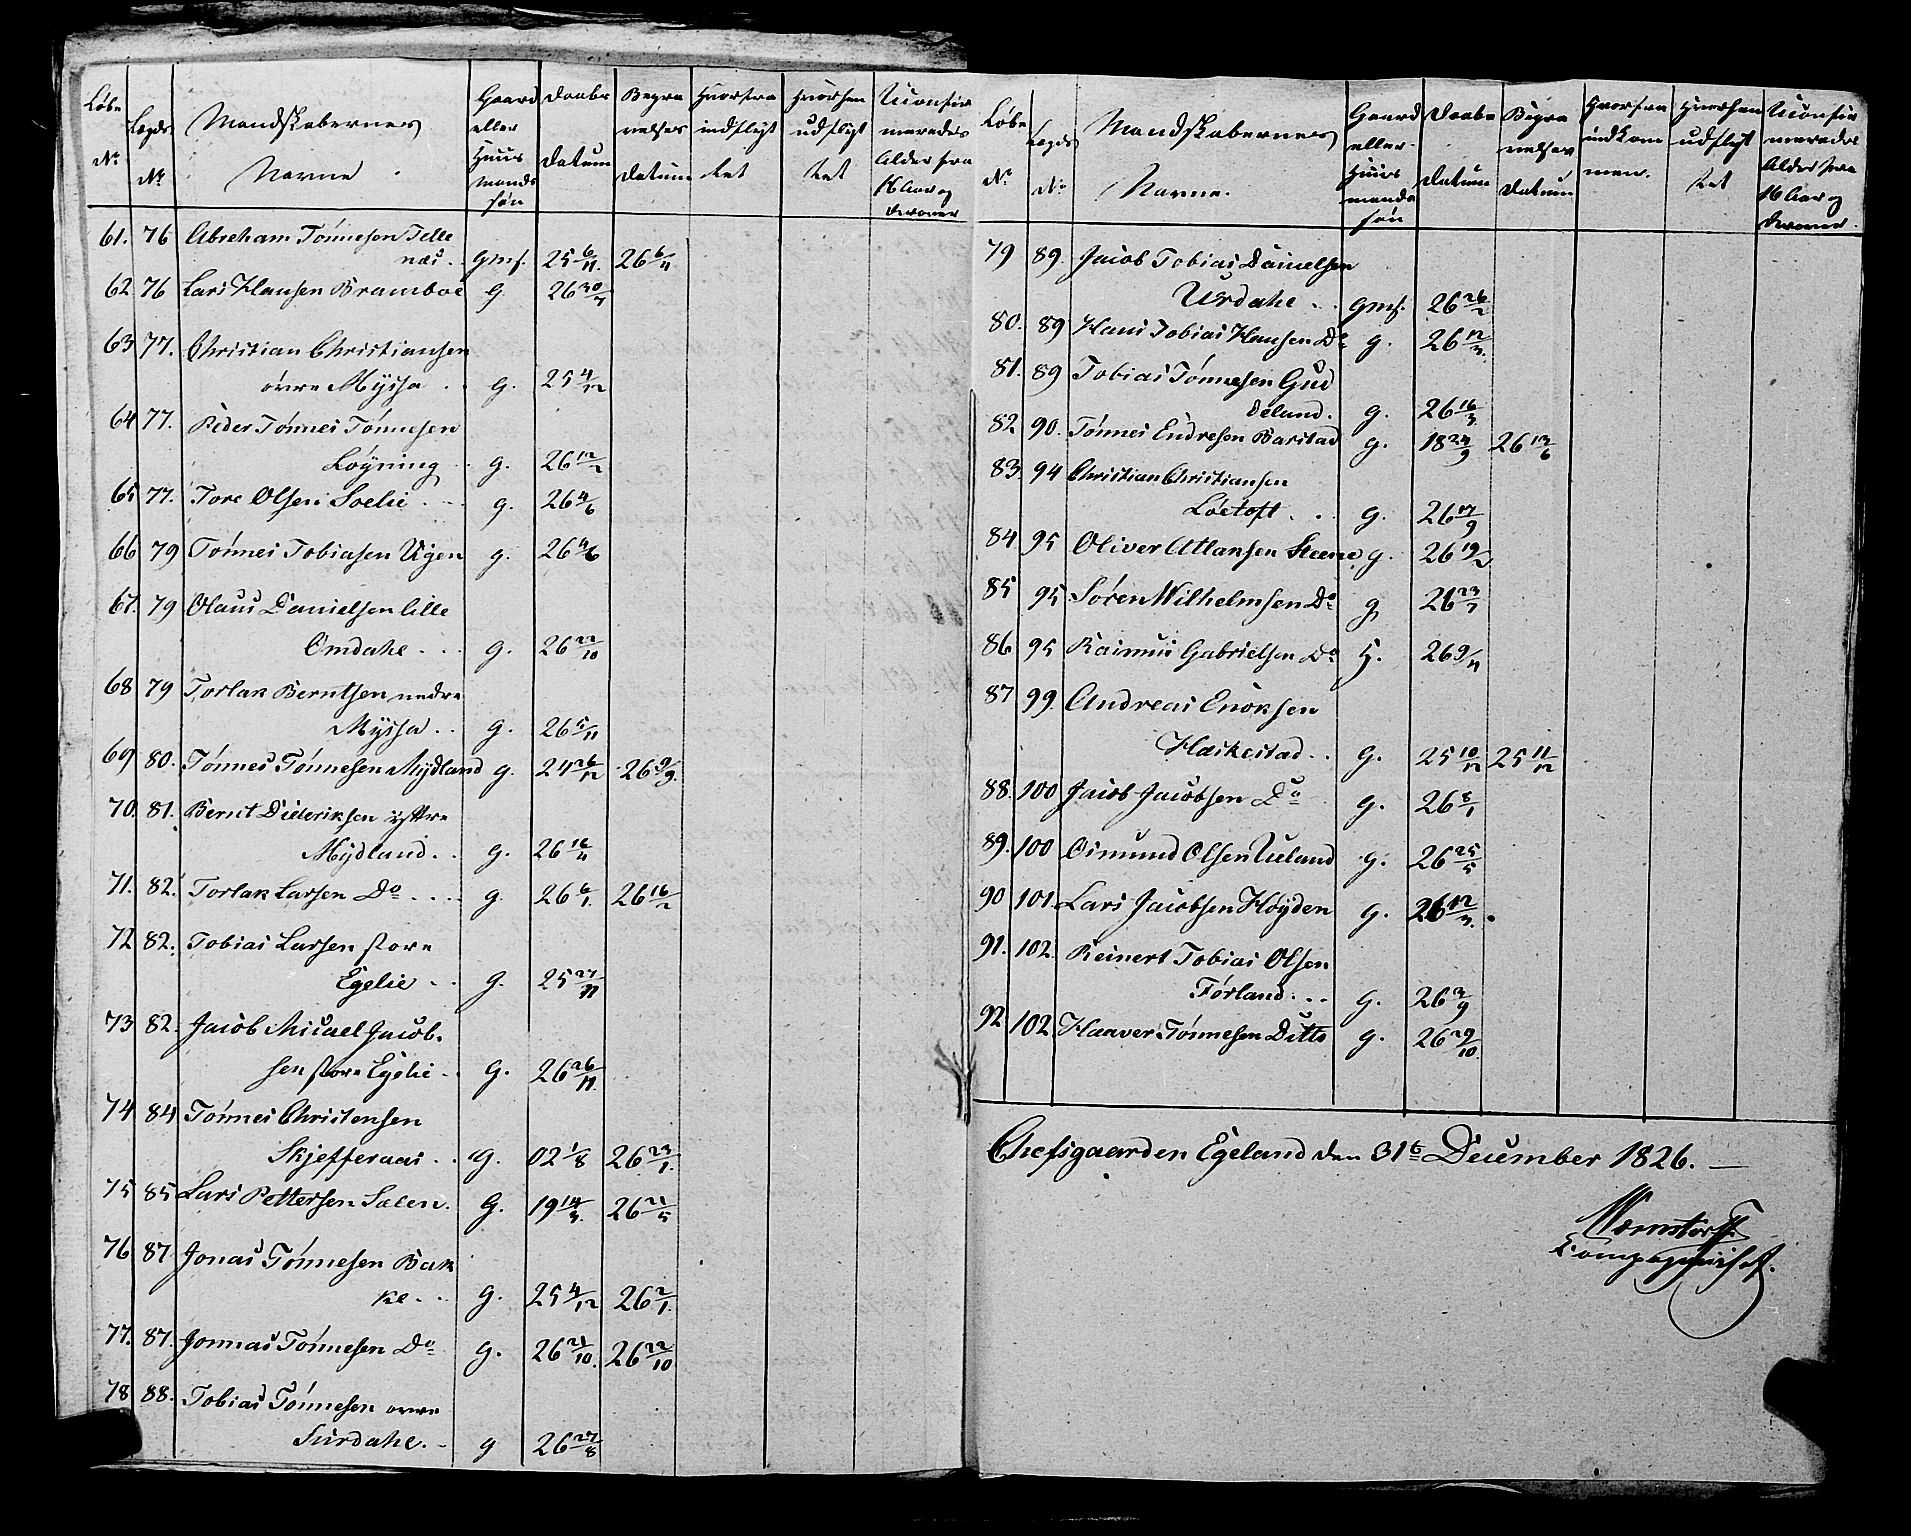 Løbe No. Legds No. Mandskabernes Navne Gaard eller Huusmands søn Daabs Datum Begravelses Datum Hvorfra indflyttet Hvorhen udflyttet Uconfirmeredes Alder fra 16 Aar og derover
61. 76 Abraham Tønnesen Telle
næs . . gmf. 25 6/11. 26 6/11
62 76 Lars Hansen Bramboe G 26 30/7
63 77. Christian Christiansen
øvre Myssa . . g. 25 4/12
64 77. Peder Tønnes Tønnesen
Løyning . . g. 26 12/2
65 77. Tore Olsen Soelie . . . g. 26 4/6
66 79 Tønnes Tobiasen Ugen g. 26 4/6
67. 79 Olaus Danielsen lille
Omdahl . . . g. 26 22/10
68 79 Torlak Berntsen nedre
Myssa . . g. 26 5/11
69 80. Tønnes Tønnesen Mydland g. 24 26/12 26 9/9.
70. 81. Bernt Dideriksen yttre
Mydland . . g. 26 16/4
71. 82. Torlak Larsen Do . . . . g. 26 6/1. 26 16/2
72 82. Tobias Larsen store
Egelie . . g. 25 27/11
73 82. Jacob Micael Jacob-
sen store Egelie . G. 26 26/11.
74 84 Tønnes Christensen
Skjefferaas . . g. 02 1/8 26 23/1.
75 85 Lars Pettersen Salen. G. 19 14/3. 26 21/5
76. 87 Jonas Tønnesen Bak
ke . . . G. 25 4/12 26 2/1.
77. 87. Jonnas Tønnesen Do G. 26 21/10. 26 22/10
78 88. Tobias Tønnesen øvre
Surdahl . . g 26 27/8
Løbe No. Legds No. Mandskabernes Navne. Gaard eller Huusmands søn Daabs Datum Begravelses Datum Hvorfra indkommen. Hvorhen udflyttet Uconfirmeredes Alder fra 16 Aar og derover.
79 89. Jacob Tobias Danielsen
Urdahl . . gmf. 26 26/2
80. 89 Hans Tobias Hansen Do g. 26 12/3.
81. 89 Tobias Tønnesen Gud
deland. g. 26 16/3
82 90. Tønnes Endresen Barstad g. 18 24/9 26 13/6
83. 94 Christian Christiansen
Løetoft . . g. 26 17/9
84 95 Oliver Atlansen Steene g. 26 19/2
85 95 Søren Wilhelmsen Do g 26 23/7
86 95 Rasmus Gabrielsen Do G. 26 9/11
87 99. Andreas Enoksen
Hæskestad . . G. 25 10/12 25 11/12
88. 100 Jacob Jacobsen Do g. 26 8/1
89. 100 Osmund Olsen Ueland g. 26 25/5
90 101. Lars Jacobsen Høyden g. 26 12/3.
91. 102. Reinert Tobias Olsen
Førland . . . G. 26 3/9
92 102. Haaver Tønnesen Ditto g. 26 29/10.
Chefsgaarden Egeland den 31te December 1826. —
Compagniechef.